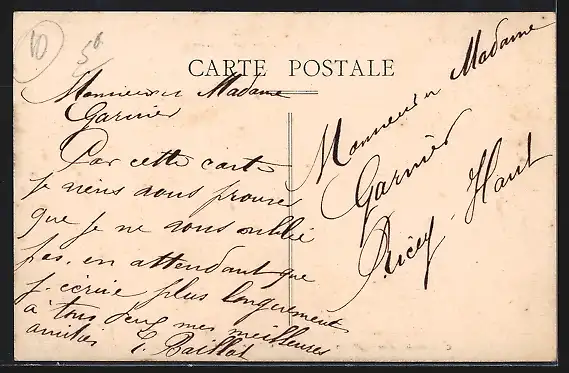 10
5d
CARTE POSTALE
Monsieur et Madame
Garnier
Par cette carte
je viens vous prouver
que je ne vous oublie
pas. en attendant que
j. écrive plus longuement
à tous deux mes meilleures
amitiés E. Baillot
Monsieur et Madame
Garnier
Ricey-Haut